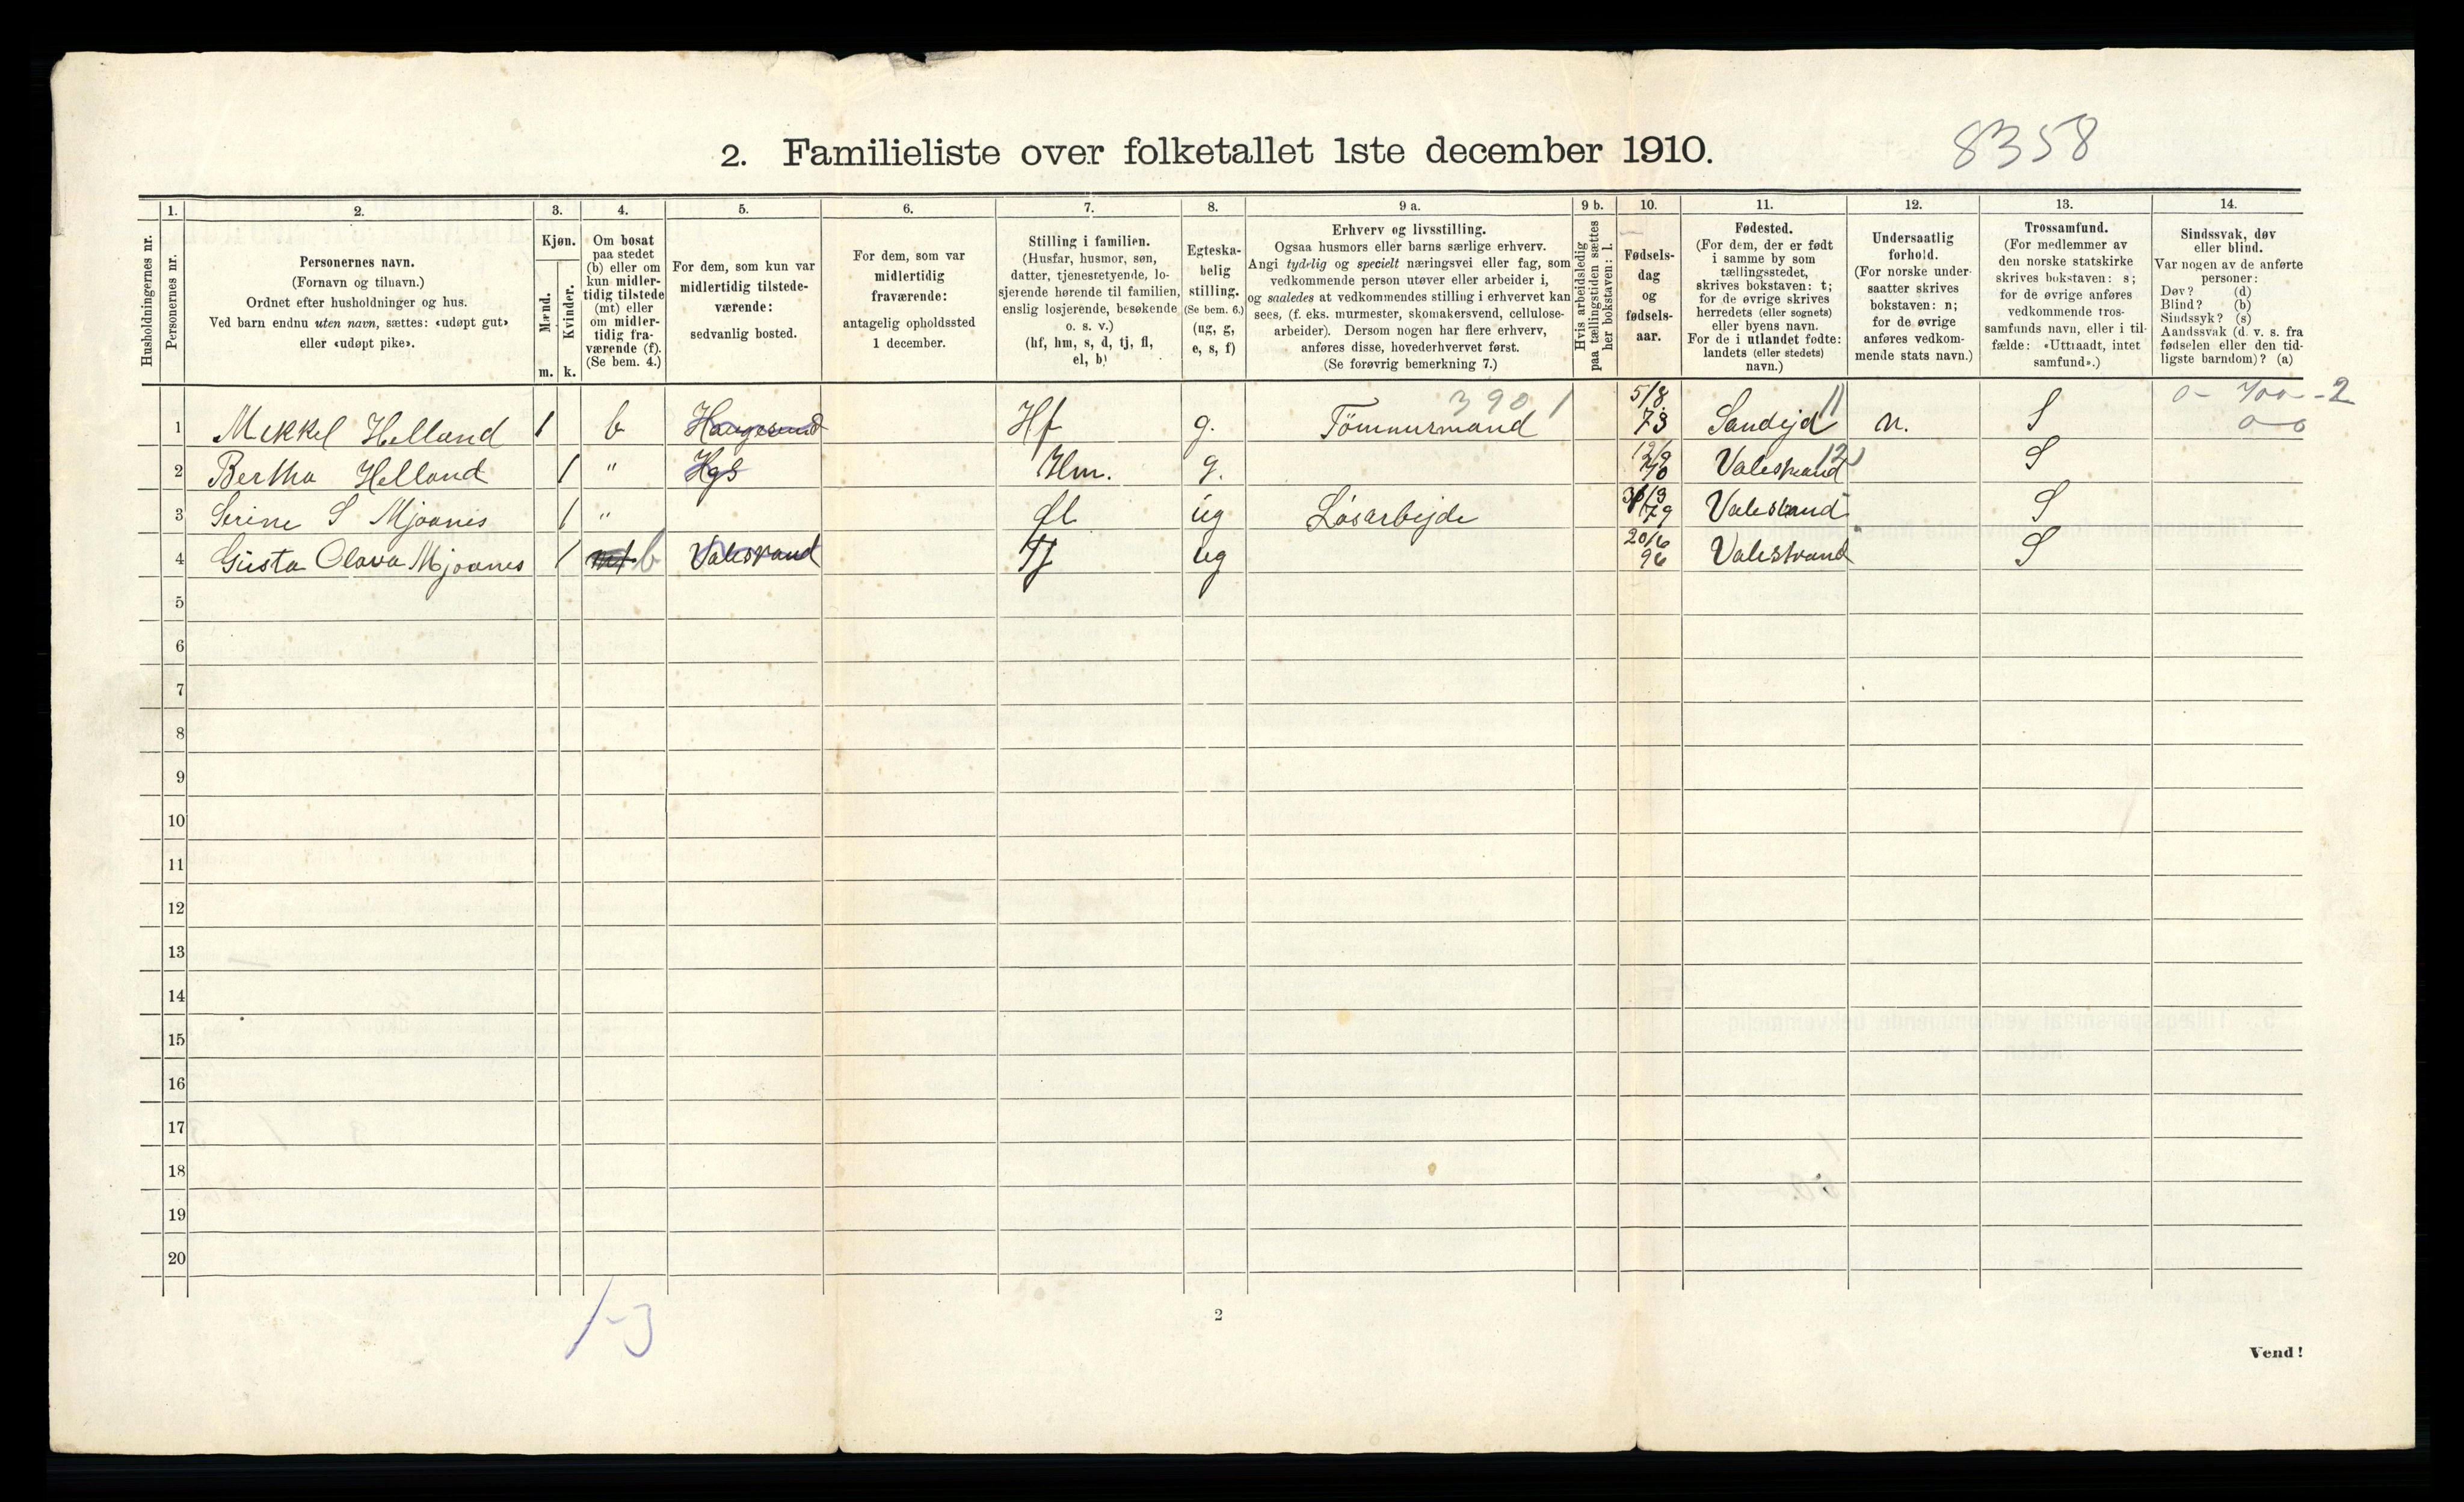 8358
2. Familieliste over folketallet 1ste december 1910.
1. 2. 3. 4. 5. 6. 7. 8. 9 a. 9 b. 10. 11. 12. 13. 14.
Husholdningernes nr.
Personernes nr.
Personernes navn.
(Fornavn og tilnavn.)
Ordnet efter husholdninger og hus.
Ved barn endnu uten navn, sættes: «udøpt gut»
eller «udøpt pike».
Kjøn.
Mænd.
Kvinder.
m. k.
Om bosat
paa stedet
(b) eller om
kun midler-
tidig tilstede
(mt) eller
om midler-
tidig fra-
værende (f).
(Se bem. 4.)
For dem, som kun var
midlertidig tilstede-
værende:
sedvanlig bosted.
For dem, som var
midlertidig
fraværende:
antagelig opholdssted
1 december.
Stilling i familien.
(Husfar, husmor, søn,
datter, tjenestetyende, lo-
sjerende hørende til familien,
enslig losjerende, besøkende
o. s. v.)
(hf, hm, s, d, tj, fl,
el, b)
Egteska-
belig
stilling.
(Se bem. 6.)
(ug, g,
e, s, f)
Erhverv og livsstilling.
Ogsaa husmors eller barns særlige erhverv.
Angi tydelig og specielt næringsvei eller fag, som
vedkommende person utøver eller arbeider i,
og saaledes at vedkommendes stilling i erhvervet kan
sees, (f. eks. murmester, skomakersvend, cellulose-
arbeider). Dersom nogen har flere erhverv,
anføres disse, hovederhvervet først.
(Se forøvrig bemerkning 7.)
Hvis arbeidsledig
paa tællingstiden sættes
her bokstaven: l.
Fødsels-
dag
og
fødsels-
aar.
Fødested.
(For dem, der er født
i samme by som
tællingsstedet,
skrives bokstaven: t;
for de øvrige skrives
herredets (eller sognets)
eller byens navn.
For de i utlandet fødte:
landets (eller stedets)
navn.)
Undersaatlig
forhold.
(For norske under-
saatter skrives
bokstaven: n;
for de øvrige
anføres vedkom-
mende stats navn.)
Trossamfund.
(For medlemmer av
den norske statskirke
skrives bokstaven: s;
for de øvrige anføres
vedkommende tros-
samfunds navn, eller i til-
fælde: «Uttraadt, intet
samfund».)
Sindssvak, døv
eller blind.
Var nogen av de anførte
personer:
Døv? (d)
Blind? (b)
Sindssyk? (s)
Aandssvak (d. v. s. fra
fødselen eller den tid-
ligste barndom)? (a)
3901 0- 400-2
1 Mikkel Helland 1 b Haugesund Hf g. Tömmermand 5/8 73 Sandejd 11 n. S 0-0
2 Bertha Helland 1 " Hgs Hm. g. 12/9 70 Valestrand 12 S
3 Serine S Mjoanes 1 " fl ug Løsarbejde 79 Valestrand S
4 Gusta Olava Mjoanes 1 mt b Valestrand Tj ug 20/6 96 Valestrand S
5
6
7
8
9
10
11
12
13
14
15
16
17
18
19
20
1-3
2
Vend!